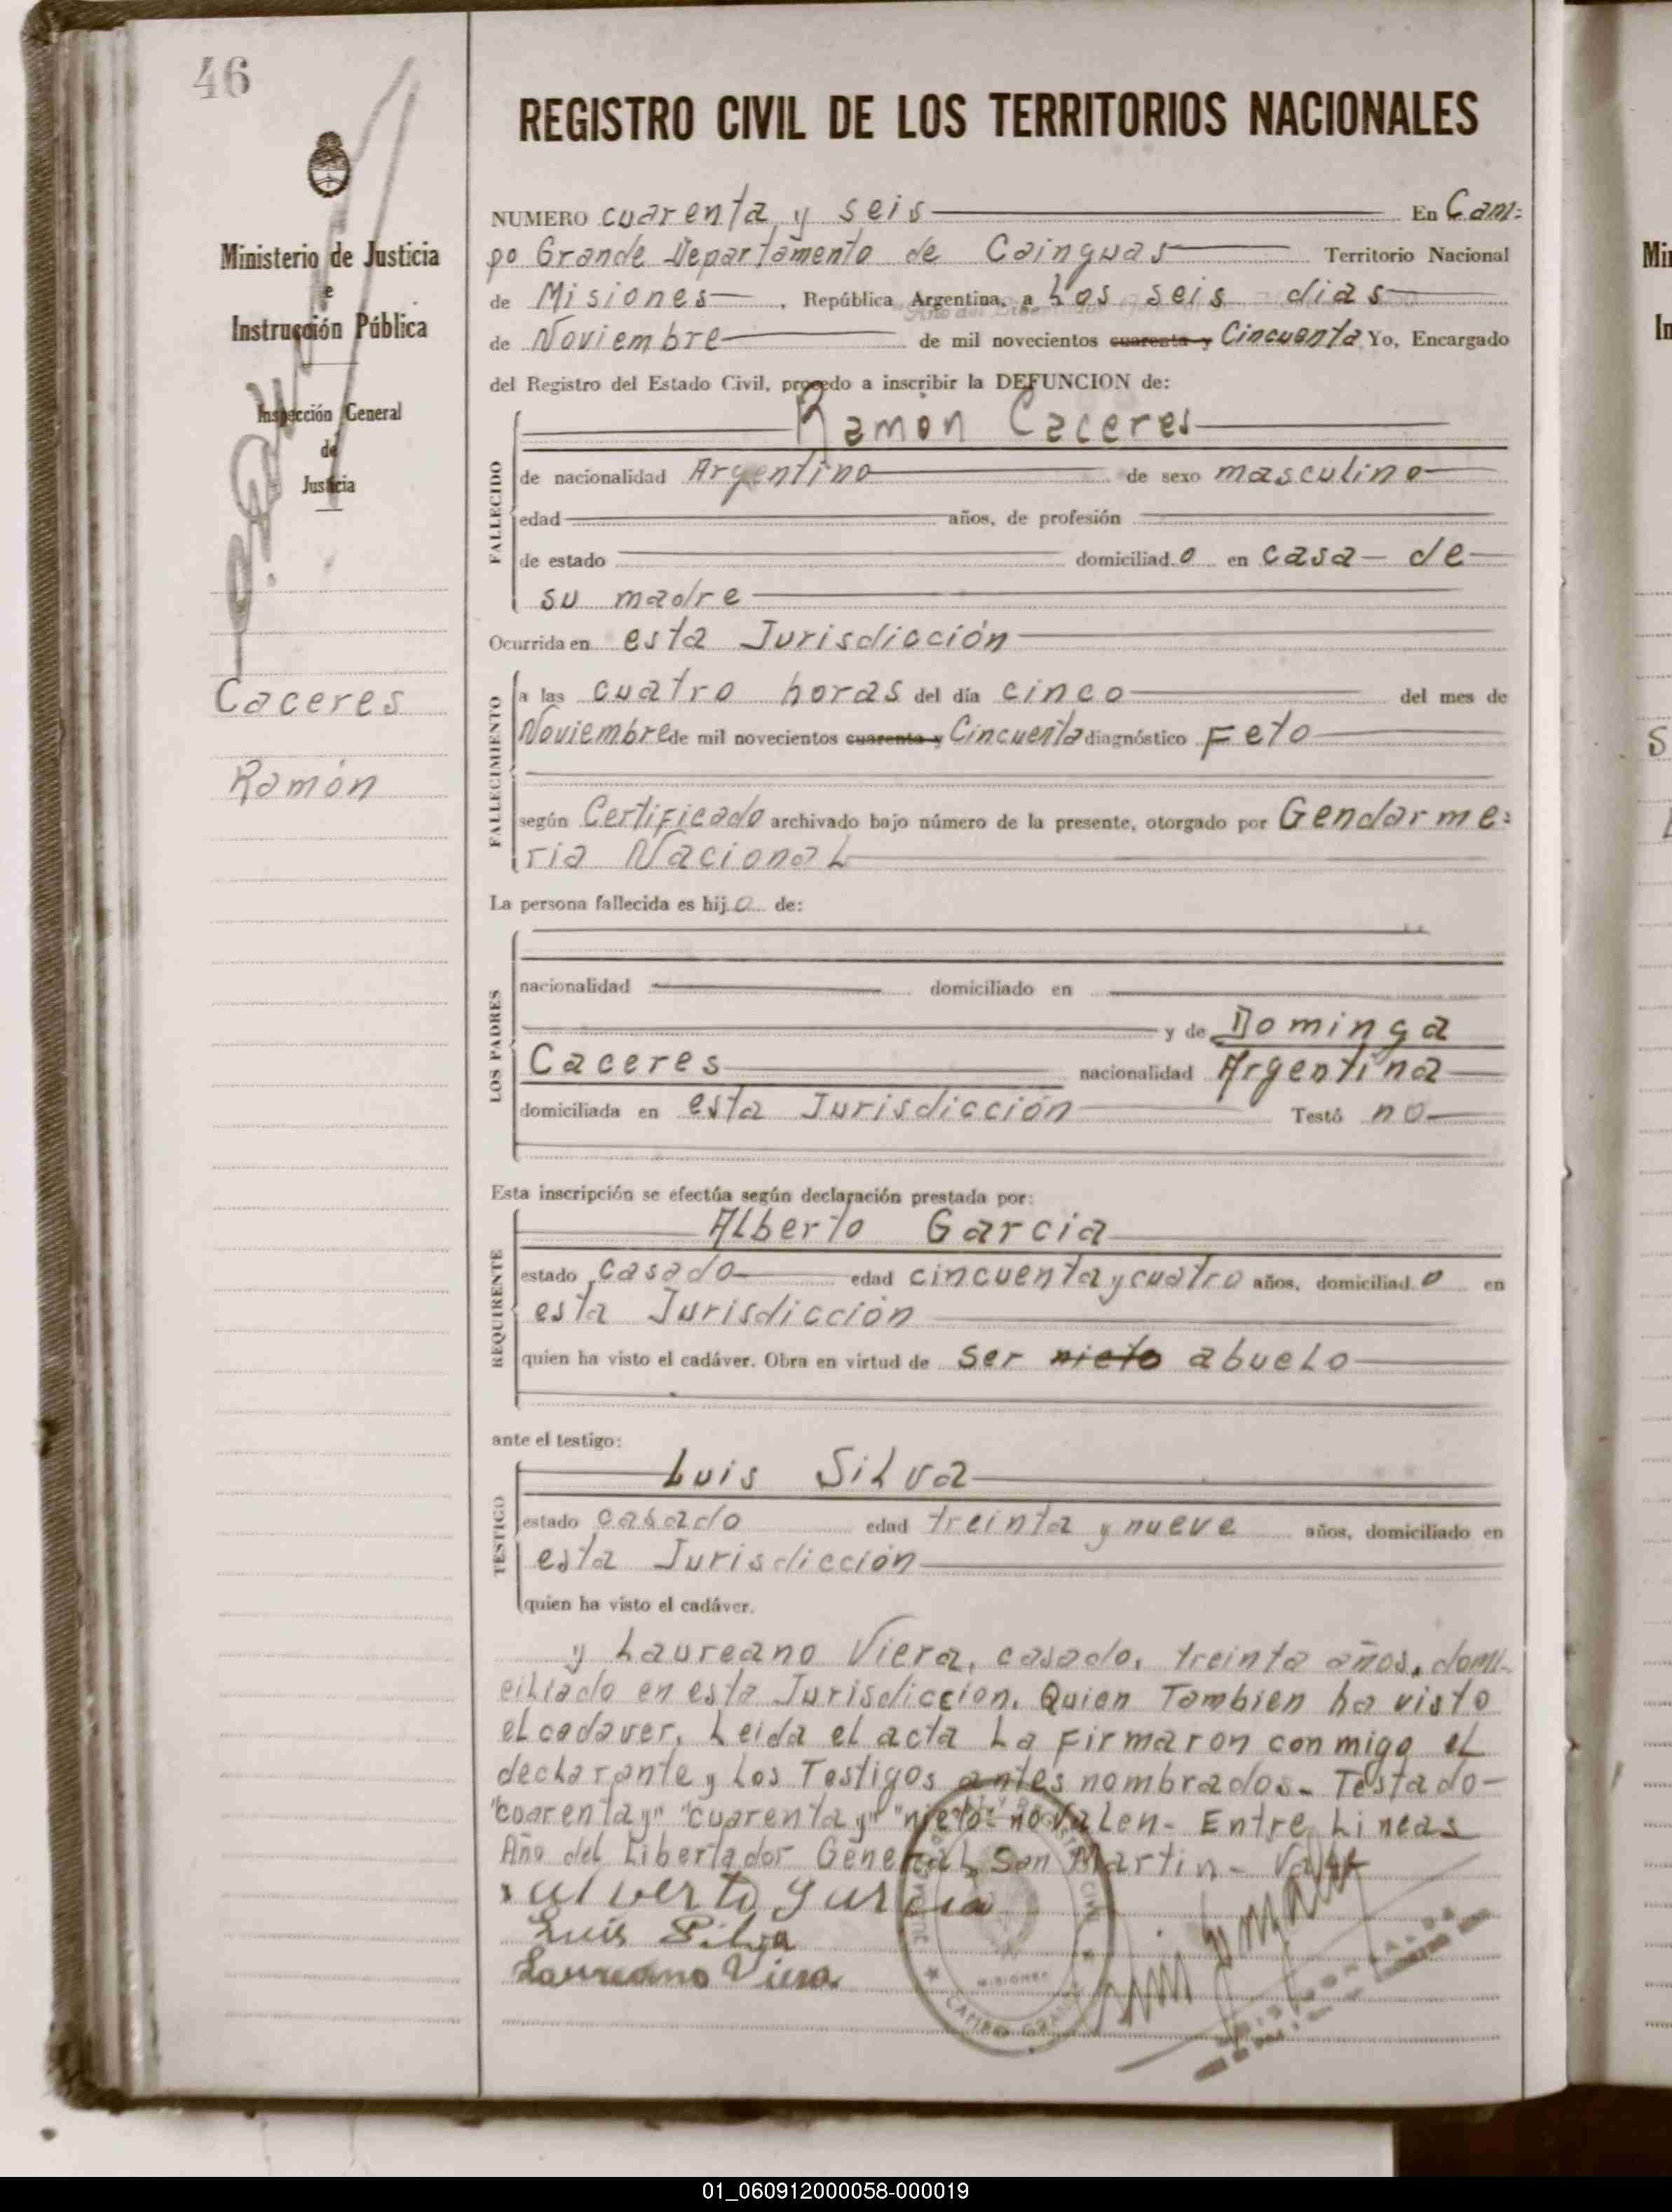 46
Ministerio de Justicia
e
Instrucción Pública
Inspección General
de
Justicia
Caceres
Ramón
REGISTRO CIVIL DE LOS TERRITORIOS NACIONALES
NUMERO cuarenta y seis En Cam=
po Grande Departamento de Cainguas Territorio Nacional
de Misiones, República Argentina, a Los seis dias
Año del Libertador
de Noviembre de mil novecientos cuarenta y Cincuenta Yo, Encargado
del Registro del Estado Civil, procedo a inscribir la DEFUNCION de:
Ramón Caceres
FALLECIDO
de nacionalidad Argentino de sexo masculino
edad años, de profesión
de estado domiciliado en casa de
su madre
Ocurrida en esta Jurisdicción
FALLECIMIENTO
a las cuatro horas del día cinco del mes de
Noviembre de mil novecientos cuarenta y Cincuenta diagnóstico Feto
según Certificado archivado bajo número de la presente, otorgado por Gendarme=
ria Nacional
La persona fallecida es hijo de:
LOS PADRES
nacionalidad domiciliado en
y de Dominga
Caceres nacionalidad Argentina
domiciliada en esta Jurisdicción Testó no
Esta inscripción se efectúa según declaración prestada por:
REQUIRENTE
Alberto Garcia
estado casado edad cincuenta y cuatro años, domiciliado en
esta Jurisdicción
quien ha visto el cadáver. Obra en virtud de ser nieto abuelo
ante el testigo:
TESTIGO
Luis Silva
estado casado edad treinta y nueve años, domiciliado en
esta Jurisdicción
quien ha visto el cadáver.
y Laureano Viera, casado, treinta años, domi-
ciliado en esta Jurisdiccion. Quien Tambien ha visto
el cadaver. Leida el acta La Firmaron con migo el
declarante y Los Testigos antes nombrados.- Testado-
"cuarenta y" "cuarenta y" "nieto" no valen- Entre Lineas
Año del Libertador General San Martin- Vale
alverto garcia
Luis Silva
Laureano Viera
MISIONES
CAMPO GRANDE